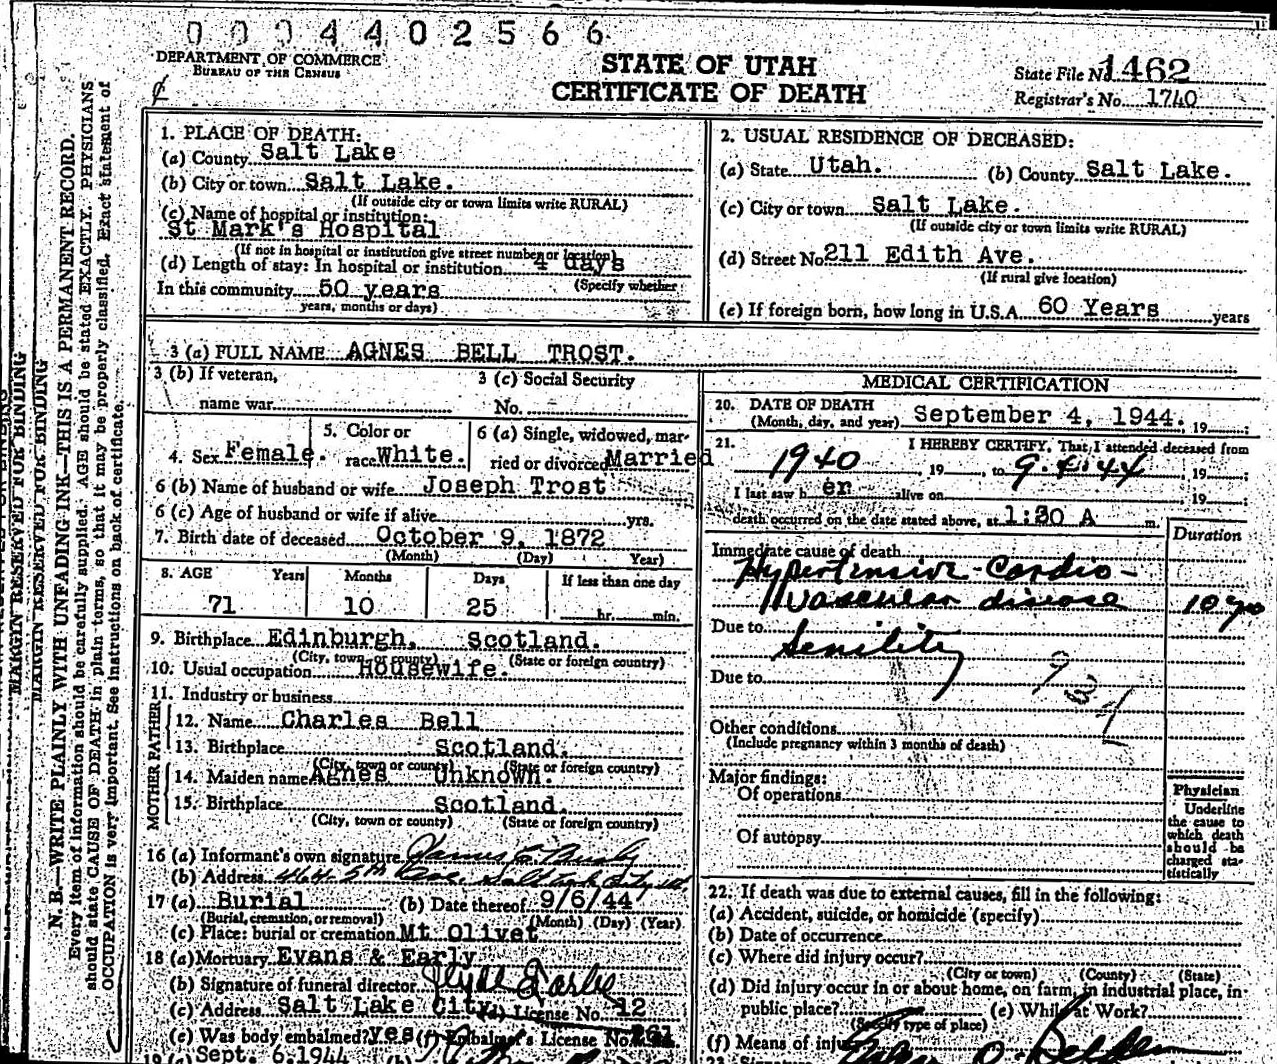 0004402566
DEPARTMENT OF COMMERCE
BUREAU OF THE CENSUS
STATE OF UTAH
CERTIFICATE OF DEATH
State File No. 1462
Registrar's No. 1740
MARGIN RESERVED FOR BINDING
N. B.—WRITE PLAINLY WITH UNFADING INK—THIS IS A PERMANENT RECORD.
Every item of information should be carefully supplied. AGE should be stated EXACTLY. PHYSICIANS
should state CAUSE OF DEATH in plain terms, so that it may be properly classified. Exact statement of
OCCUPATION is very important. See instructions on back of certificate.
1. PLACE OF DEATH:
(a) County Salt Lake
(b) City or town Salt Lake.
(If outside city or town limits write RURAL)
(c) Name of hospital or institution:
St Mark's Hospital
(If not in hospital or institution give street number or location)
(d) Length of stay: In hospital or institution 4 days
(Specify whether
In this community 50 years
years, months or days)
2. USUAL RESIDENCE OF DECEASED:
(a) State Utah. (b) County Salt Lake.
(c) City or town Salt Lake.
(If outside city or town limits write RURAL)
(d) Street No. 211 Edith Ave.
(If rural give location)
(e) If foreign born, how long in U.S.A. 60 Years years
3 (a) FULL NAME AGNES BELL TROST.
3 (b) If veteran,
name war
3 (c) Social Security
No.
4. Sex Female.
5. Color or
race White.
6 (a) Single, widowed, mar-
ried or divorced Married
6 (b) Name of husband or wife Joseph Trost
6 (c) Age of husband or wife if alive yrs.
7. Birth date of deceased October 9, 1872
(Month) (Day) Year)
8. AGE Years Months Days If less than one day
71 10 25 hr. min.
9. Birthplace Edinburgh, Scotland.
(City, town or county) (State or foreign country)
10. Usual occupation Housewife.
11. Industry or business
FATHER
12. Name Charles Bell
13. Birthplace Scotland.
(City, town or county) (State or foreign country)
MOTHER
14. Maiden name Agnes Unknown.
15. Birthplace Scotland.
(City, town or county) (State or foreign country)
16 (a) Informant's own signature James
(b) Address 5th Salt Lake City
17 (a) Burial (b) Date thereof 9/6/44
(Burial, cremation, or removal) (Month) (Day) (Year)
(c) Place: burial or cremation Mt Olivet
18 (a) Mortuary Evans & Early
(b) Signature of funeral director
(c) Address Salt Lake City (d) License No. 12
(e) Was body embalmed? yes (f) Embalmer's License No.
Sept. 6.1944
MEDICAL CERTIFICATION
20. DATE OF DEATH
(Month, day, and year) September 4, 1944. , 19 ;
21. I HEREBY CERTIFY, That I attended deceased from
1940 , 19 , to 9.4.44 , 19 ;
I last saw h er alive on , 19 ;
death occurred on the date stated above, at 1:30 A m.
Duration
Immediate cause of death
Hypertensive Cardio-
vascular disease 10 yo
Due to Senility
Due to
Other conditions
(Include pregnancy within 3 months of death)
Major findings:
Of operations
Of autopsy
Physician
Underline
the cause to
which death
should be
charged sta-
tistically
22. If death was due to external causes, fill in the following:
(a) Accident, suicide, or homicide (specify)
(b) Date of occurrence
(c) Where did injury occur?
(City or town) (County) (State)
(d) Did injury occur in or about home, on farm, in industrial place, in
public place? (e) While at Work?
(Specify type of place)
(f) Means of injury